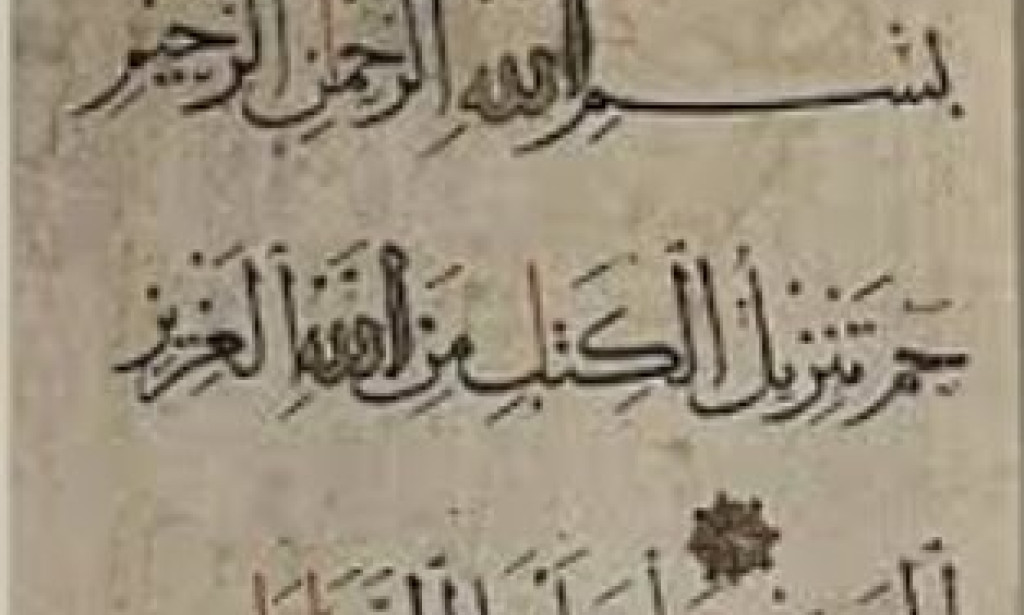 بِسْمِ اللهِ الرَّحْمٰنِ الرَّحِيمِ
حم تَنْزِيلُ الْكِتٰبِ مِنَ اللهِ الْعَزِيزِ